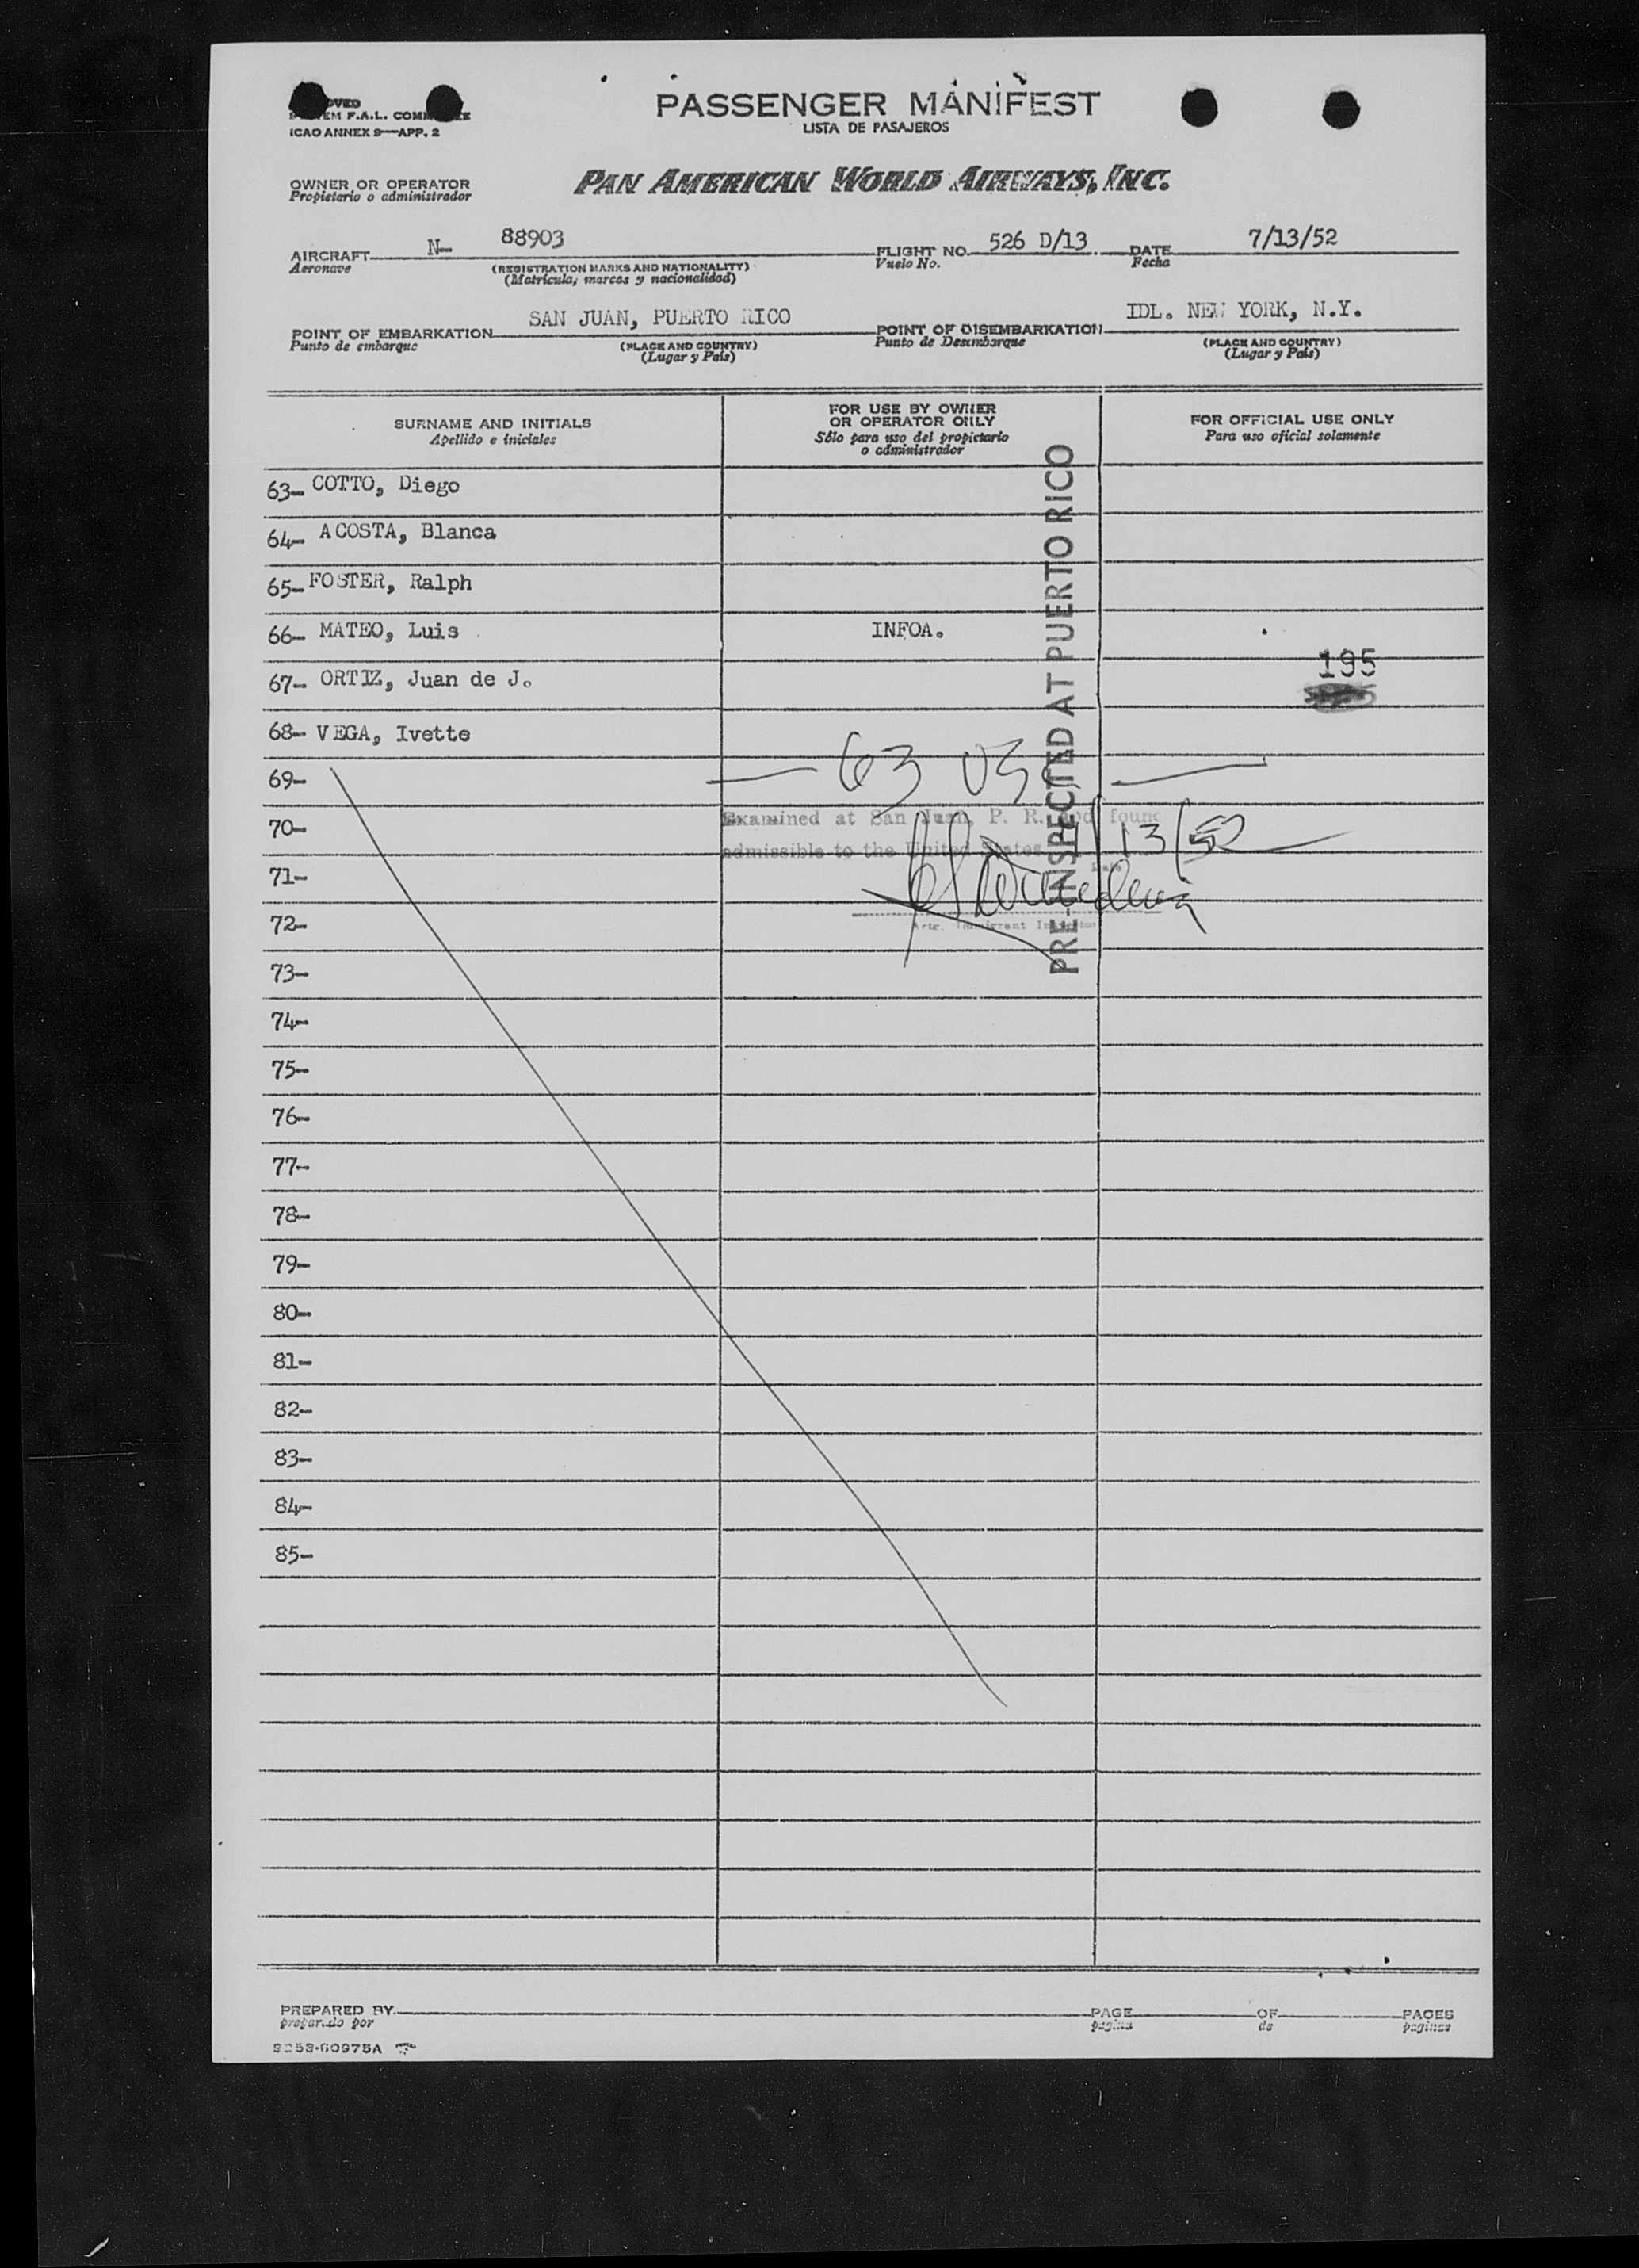 PASSENGER MANIFEST
LISTA DE PASAJEROS
F.A.L.
ICAO ANNEX 9—APP. 2
OWNER OR OPERATOR
Propietario o administrador
PAN AMERICAN WORLD AIRWAYS, INC.
AIRCRAFT N- 88903 FLIGHT NO. 526 D/13 DATE 7/13/52
Aeronave (REGISTRATION MARKS AND NATIONALITY) Vuelo No. Fecha
(Matrícula, marcas y nacionalidad)
SAN JUAN, PUERTO RICO IDL. NEW YORK, N.Y.
POINT OF EMBARKATION POINT OF DISEMBARKATION
Punto de embarque (PLACE AND COUNTRY) Punto de Desembarque (PLACE AND COUNTRY)
(Lugar y País) (Lugar y País)
SURNAME AND INITIALS
Apellido e iniciales
FOR USE BY OWNER
OR OPERATOR ONLY
Sólo para uso del propietario
o administrador
FOR OFFICIAL USE ONLY
Para uso oficial solamente
63- COTTO, Diego
64- ACOSTA, Blanca
65- FOSTER, Ralph
66- MATEO, Luis INFOA.
67- ORTIZ, Juan de J.
195
68- VEGA, Ivette
69-
63 US
70-
Examined at San Juan, P. R. and found
admissible to the United States
7/13/52
71-
72-
Immigrant Inspector
PRE-INSPECTED AT PUERTO RICO
73-
74-
75-
76-
77-
78-
79-
80-
81-
82-
83-
84-
85-
PREPARED BY PAGE OF PAGES
preparado por página de páginas
9253-60975A